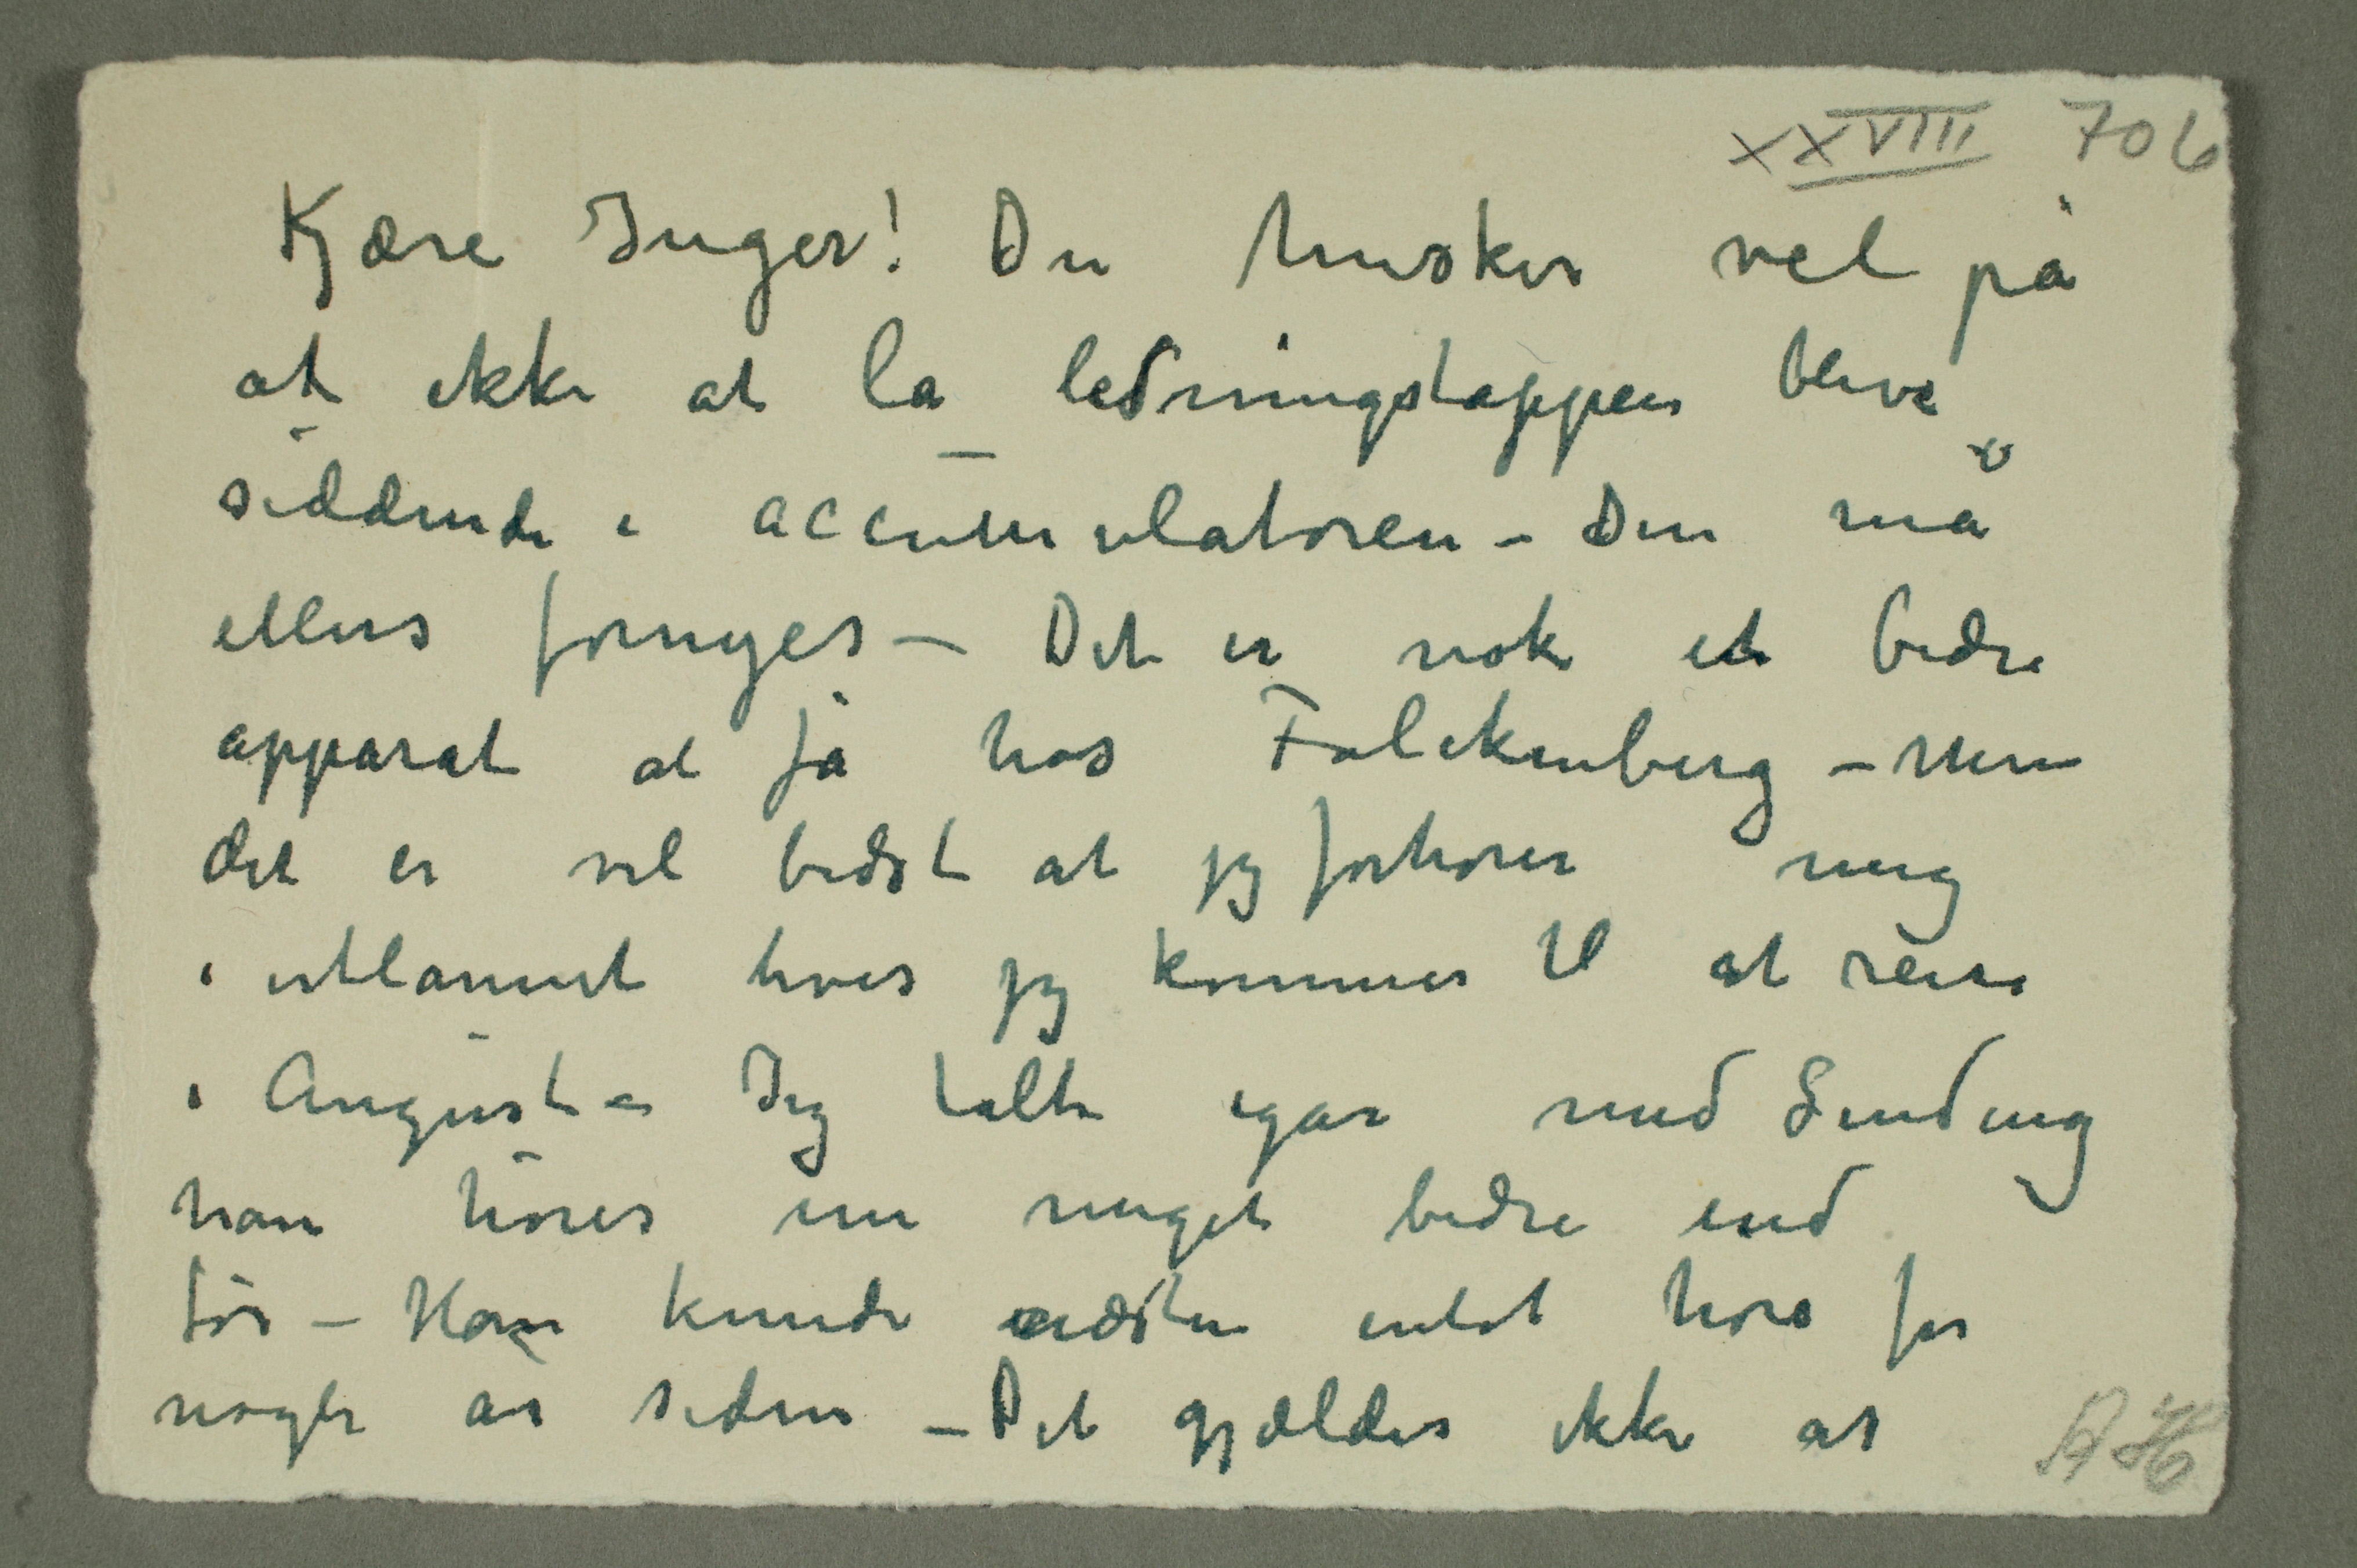 XXVIII 706
Kjære Inger! Du husker vel på
at ikke at la ledningstappen blive
siddende i accumulatoren – Den må
ellers fornyes – Det er nok et bedre
apparat at få hos Falckenberg – Men
det er vel bedst at jeg forhører meg
i utlannet hvis jeg kommer til at reise
i August – Jeg talte igår med Sinding
han hører nu meget bedre end
før – Han kunde næsten intet høre for
nogle år siden – Det gjælder ikke at